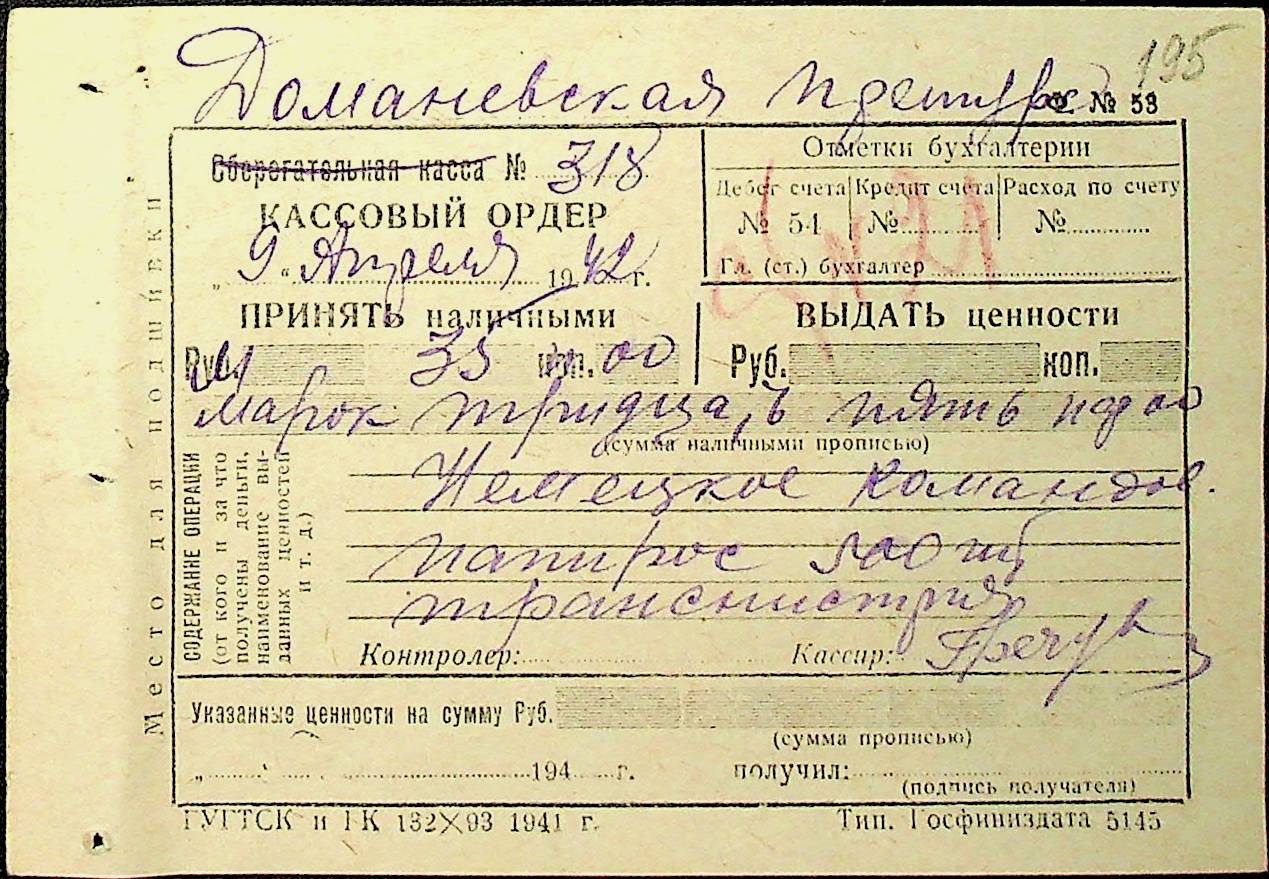 195
Домановская претура
Ф. № 53
Сберегательная касса № 318
КАССОВЫЙ ОРДЕР
„9“ Апреля 1942 г.
Отметки бухгалтерии
Дебет счета Кредит счета Расход по счету
№ 54 № №
Гл. (ст.) бухгалтер
ПРИНЯТЬ наличными
Руб. 35 коп. 00
ВЫДАТЬ ценности
Руб. коп.
Марок тридцать пять пф 00
(сумма наличными прописью)
СОДЕРЖАНИЕ ОПЕРАЦИИ
(от кого и за что
получены деньги,
наименование вы-
данных ценностей
и т. д.)
Немецкое командов.
папирос 500 шт
транснистрия
Контролер: Кассир:
Указанные ценности на сумму Руб.
(сумма прописью)
„ 194 г. получил:
(подпись получателя)
ГУГТСК и ГК 132X93 1941 г. Тип. Госфиниздата 5145
Место для подшивки